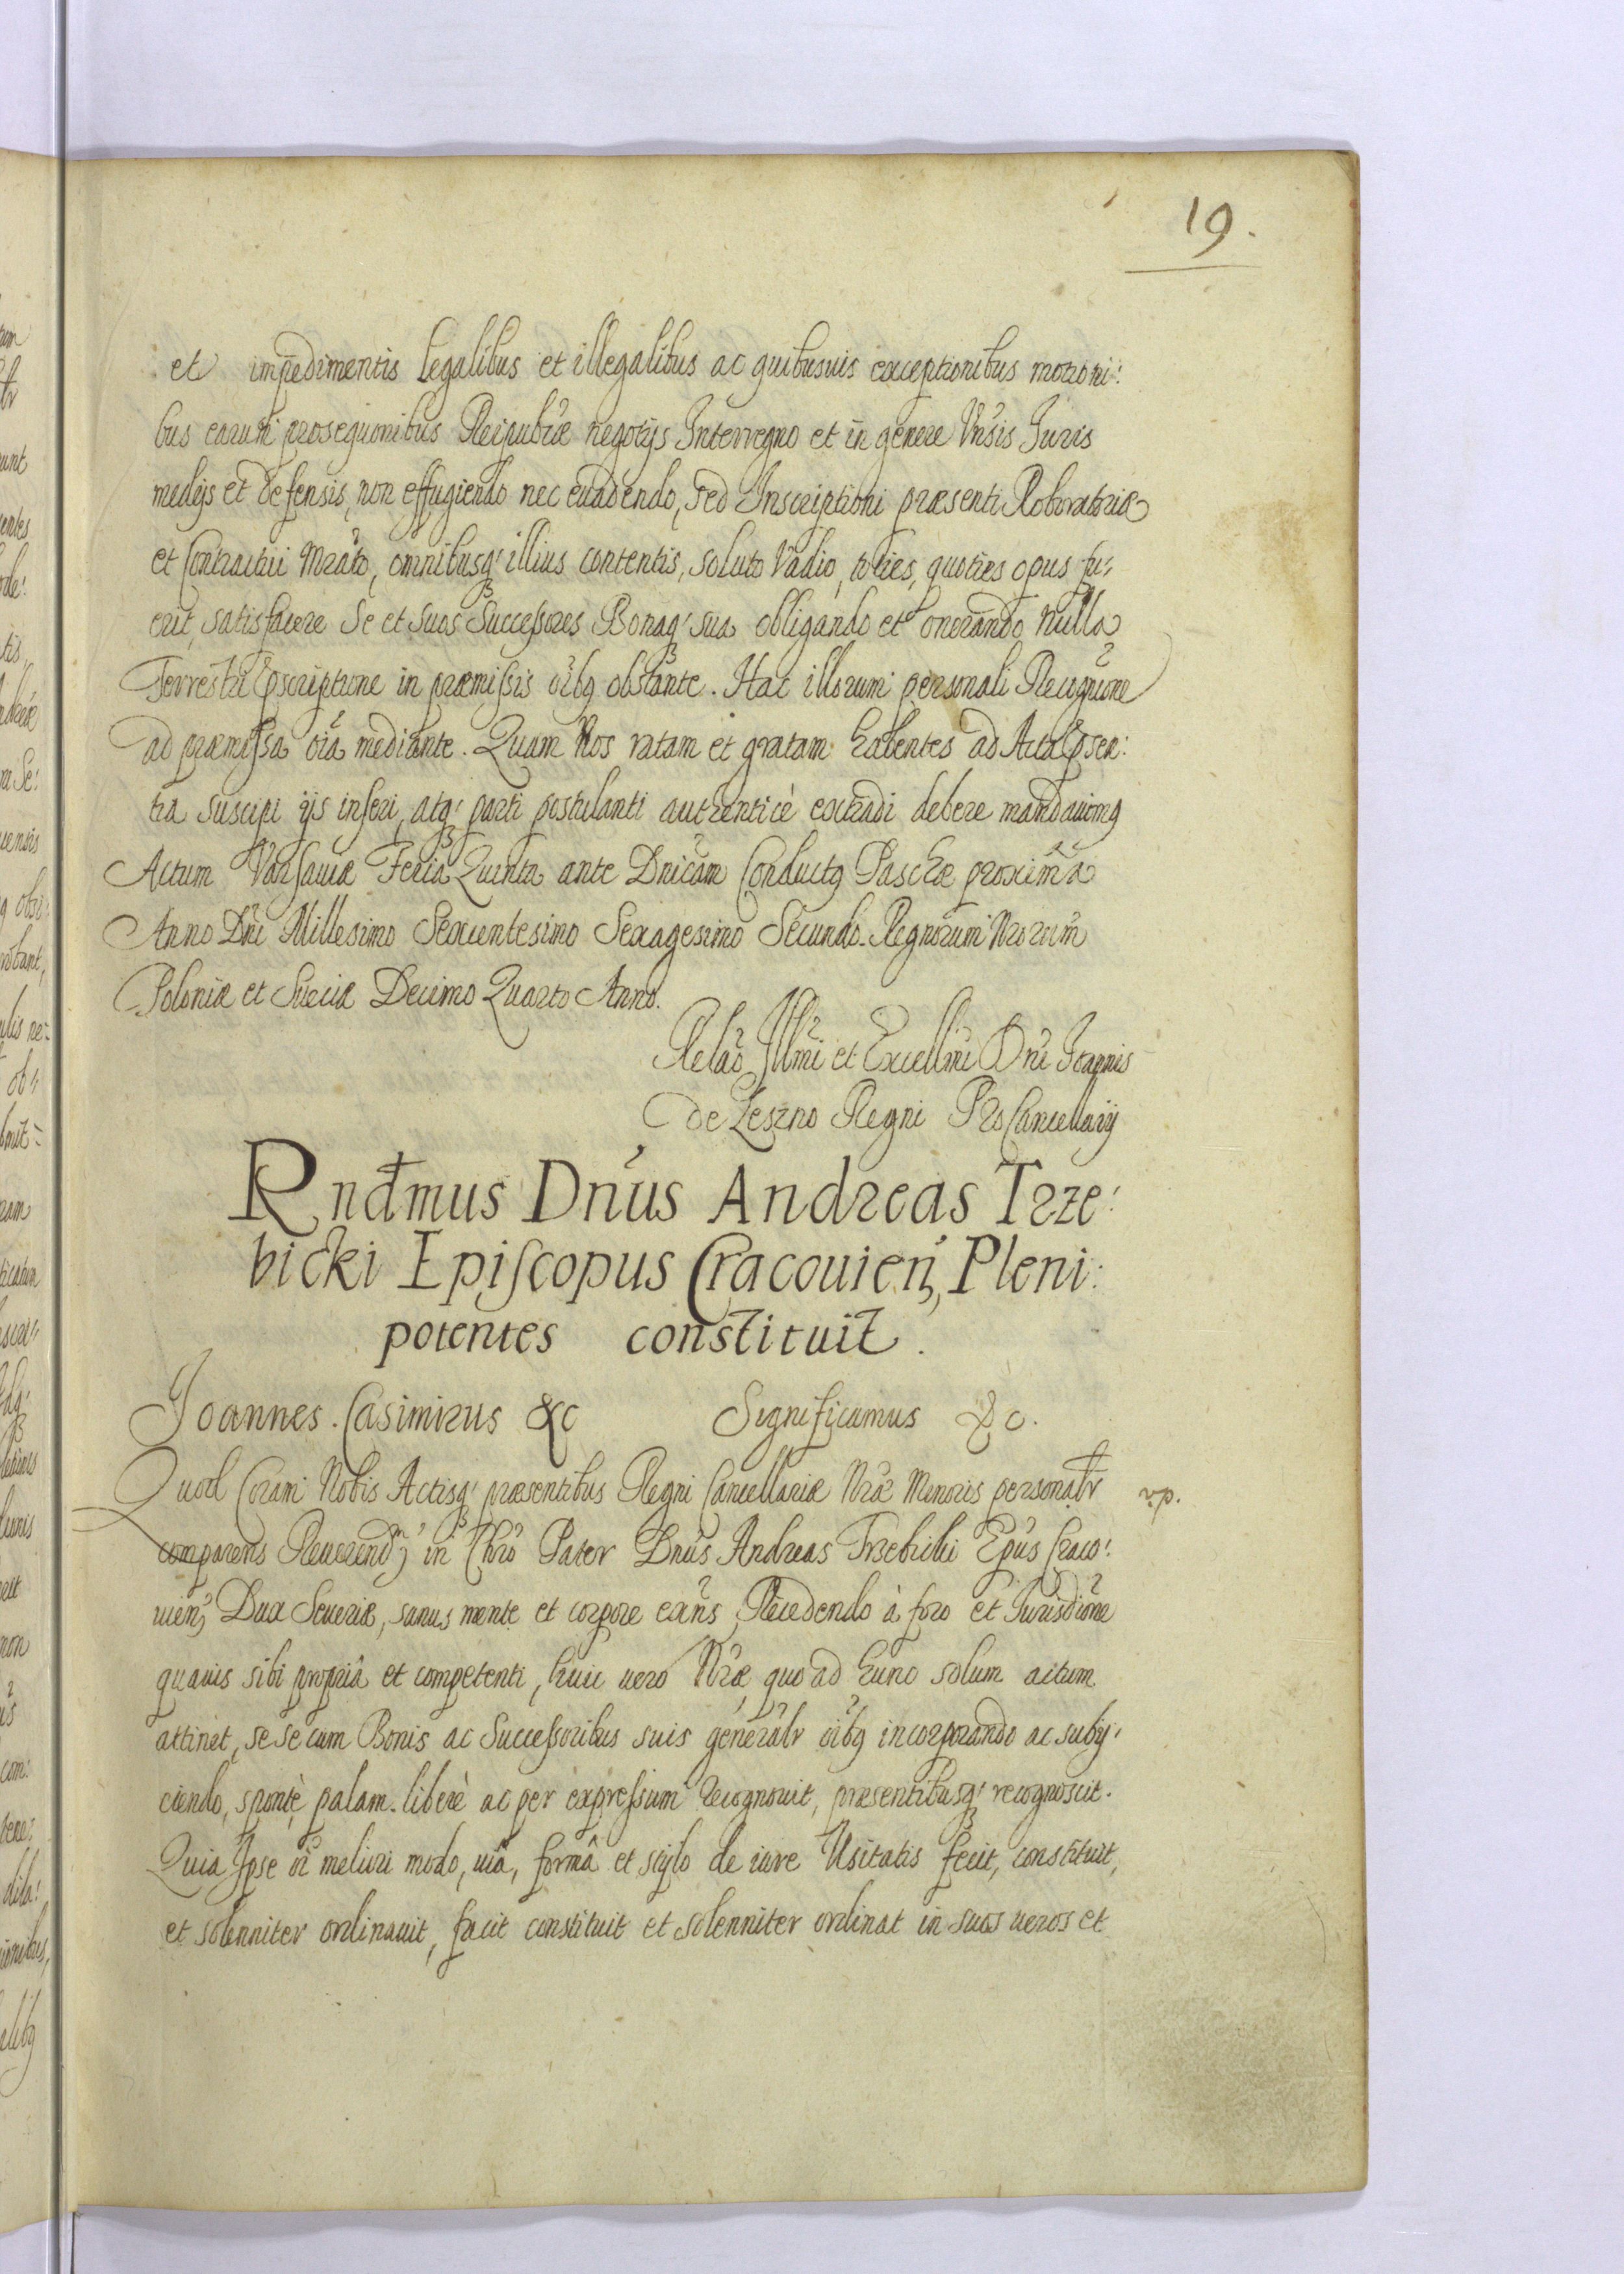 19.
et impedimentis Legalibus et illegalibus ac quibusuis exceptionibus motioni:
bus earum proseqõonibus Reipublæ negotijs Interregno et in genere Vnsis Juris
medijs et defensis, non effugiendo nec euadendo, sed Inscriptioni præsenti Roboratoriæ
et Contractui Mrato, omnibusq3 illius contentis, soluto Vadio, toties, quoties opus fu:
erit, satisfacere Se et suos Successores Bonaq3 sua obligando et onerando Nulla
Terrestri Pscriptione in præmissis oibq obstante. Hac illorum personali Recognione
ad præmissa oia mediante. Quam Nos ratam et gratam habentes ad Acta Psen:
tia suscipi ijs inseri, atq3 parti postulanti authenticè extradi debere mandauimq
Actum Varsauiæ Feria Quinta ante Dnicam Conductq Paschæ proxima
Anno Dni Millesimo Sexcentesimo Sexagesimo Secundo. Regnorum Nrorum
Poloniæ et Sueciæ Decimo Quarto Anno.
Relao Illmi et Excellmi Dni Joannis
de Leszno Regni ProCancellarij
Rndmus Dnus Andreas Trze:
bicki Episcopus Cracouien, Pleni:
potentes constituit.
Joannes. Casimirus &c Significamus &c.
Quod Coram Nobis Actisq3 præsentibus Regni Cancellariæ Nræ Minoris personalr
comparens Reuerend9 in Chro Pater Dnus Andreas Trzebicki Epus Craco:
uien, Dux Seueriæ, sanus mente et corpore exns, Recedendo à foro et Jurisdione
quauis sibi propriâ et competenti, huic uero Nræ, quo ad hunc solum actum
attinet, se se cum Bonis ac Successoribus suis generalr oibq incorporando ac subij:
ciendo, spontè palam. liberè ac per expressum recognouit, præsentibusq3 recognoscit.
Quia Ipse oi meliori modo, uiâ, formâ et stylo de iure Usitatis fecit, constituit,
et solenniter ordinauit, facit constituit et solenniter ordinat in suos ueros et